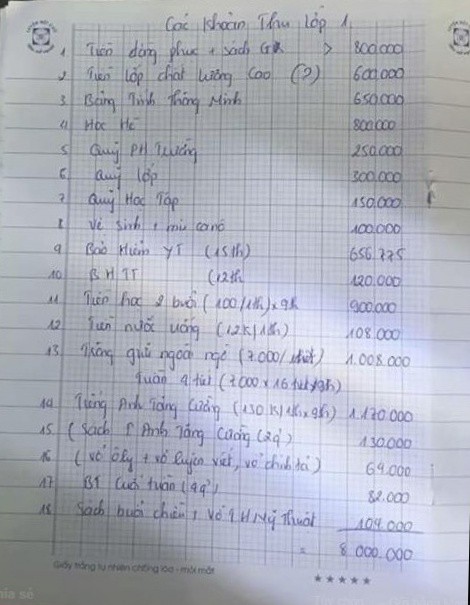 Các Khoản Thu Lớp 1
1 Tiền đồng phục + sách GK > 800.000
2 Tiền lớp chất lượng Cao (?) 600.000
3 Bảng Tính Thông Minh 650.000
4 Học Hè 800.000
5 Quỹ PH Trường 250.000
6 Quỹ lớp 300.000
7 Quỹ Học Tập 150.000
8 Vệ sinh + 100.000
9 Bảo Hiểm YT (15th) 656.775
10 BHTT (12th 120.000
11 Tiền học 2 buổi (100/1th) x 9th 900.000
12 Tiền nước uống (12K/1th) 108.000
13 Trông giữ ngoài giờ (7.000/ 1.008.000
Tuần 4 tiết (7000 x 16 tiết/9th)
14 Tiếng Anh Tăng Cường (130K/1th x 9th) 1.170.000
15 (Sách T Anh Tăng Cường (2q) 130.000
16 (vở ôly + vở luyện viết, vở chính tả) 64.000
17 BT Cuối tuần (4q) 82.000
18 Sách buổi chiều, vở TH Mỹ Thuật 104.000
= 8.000.000
Giấy trắng tự nhiên chống lóa - mỏi mắt
★★★★★